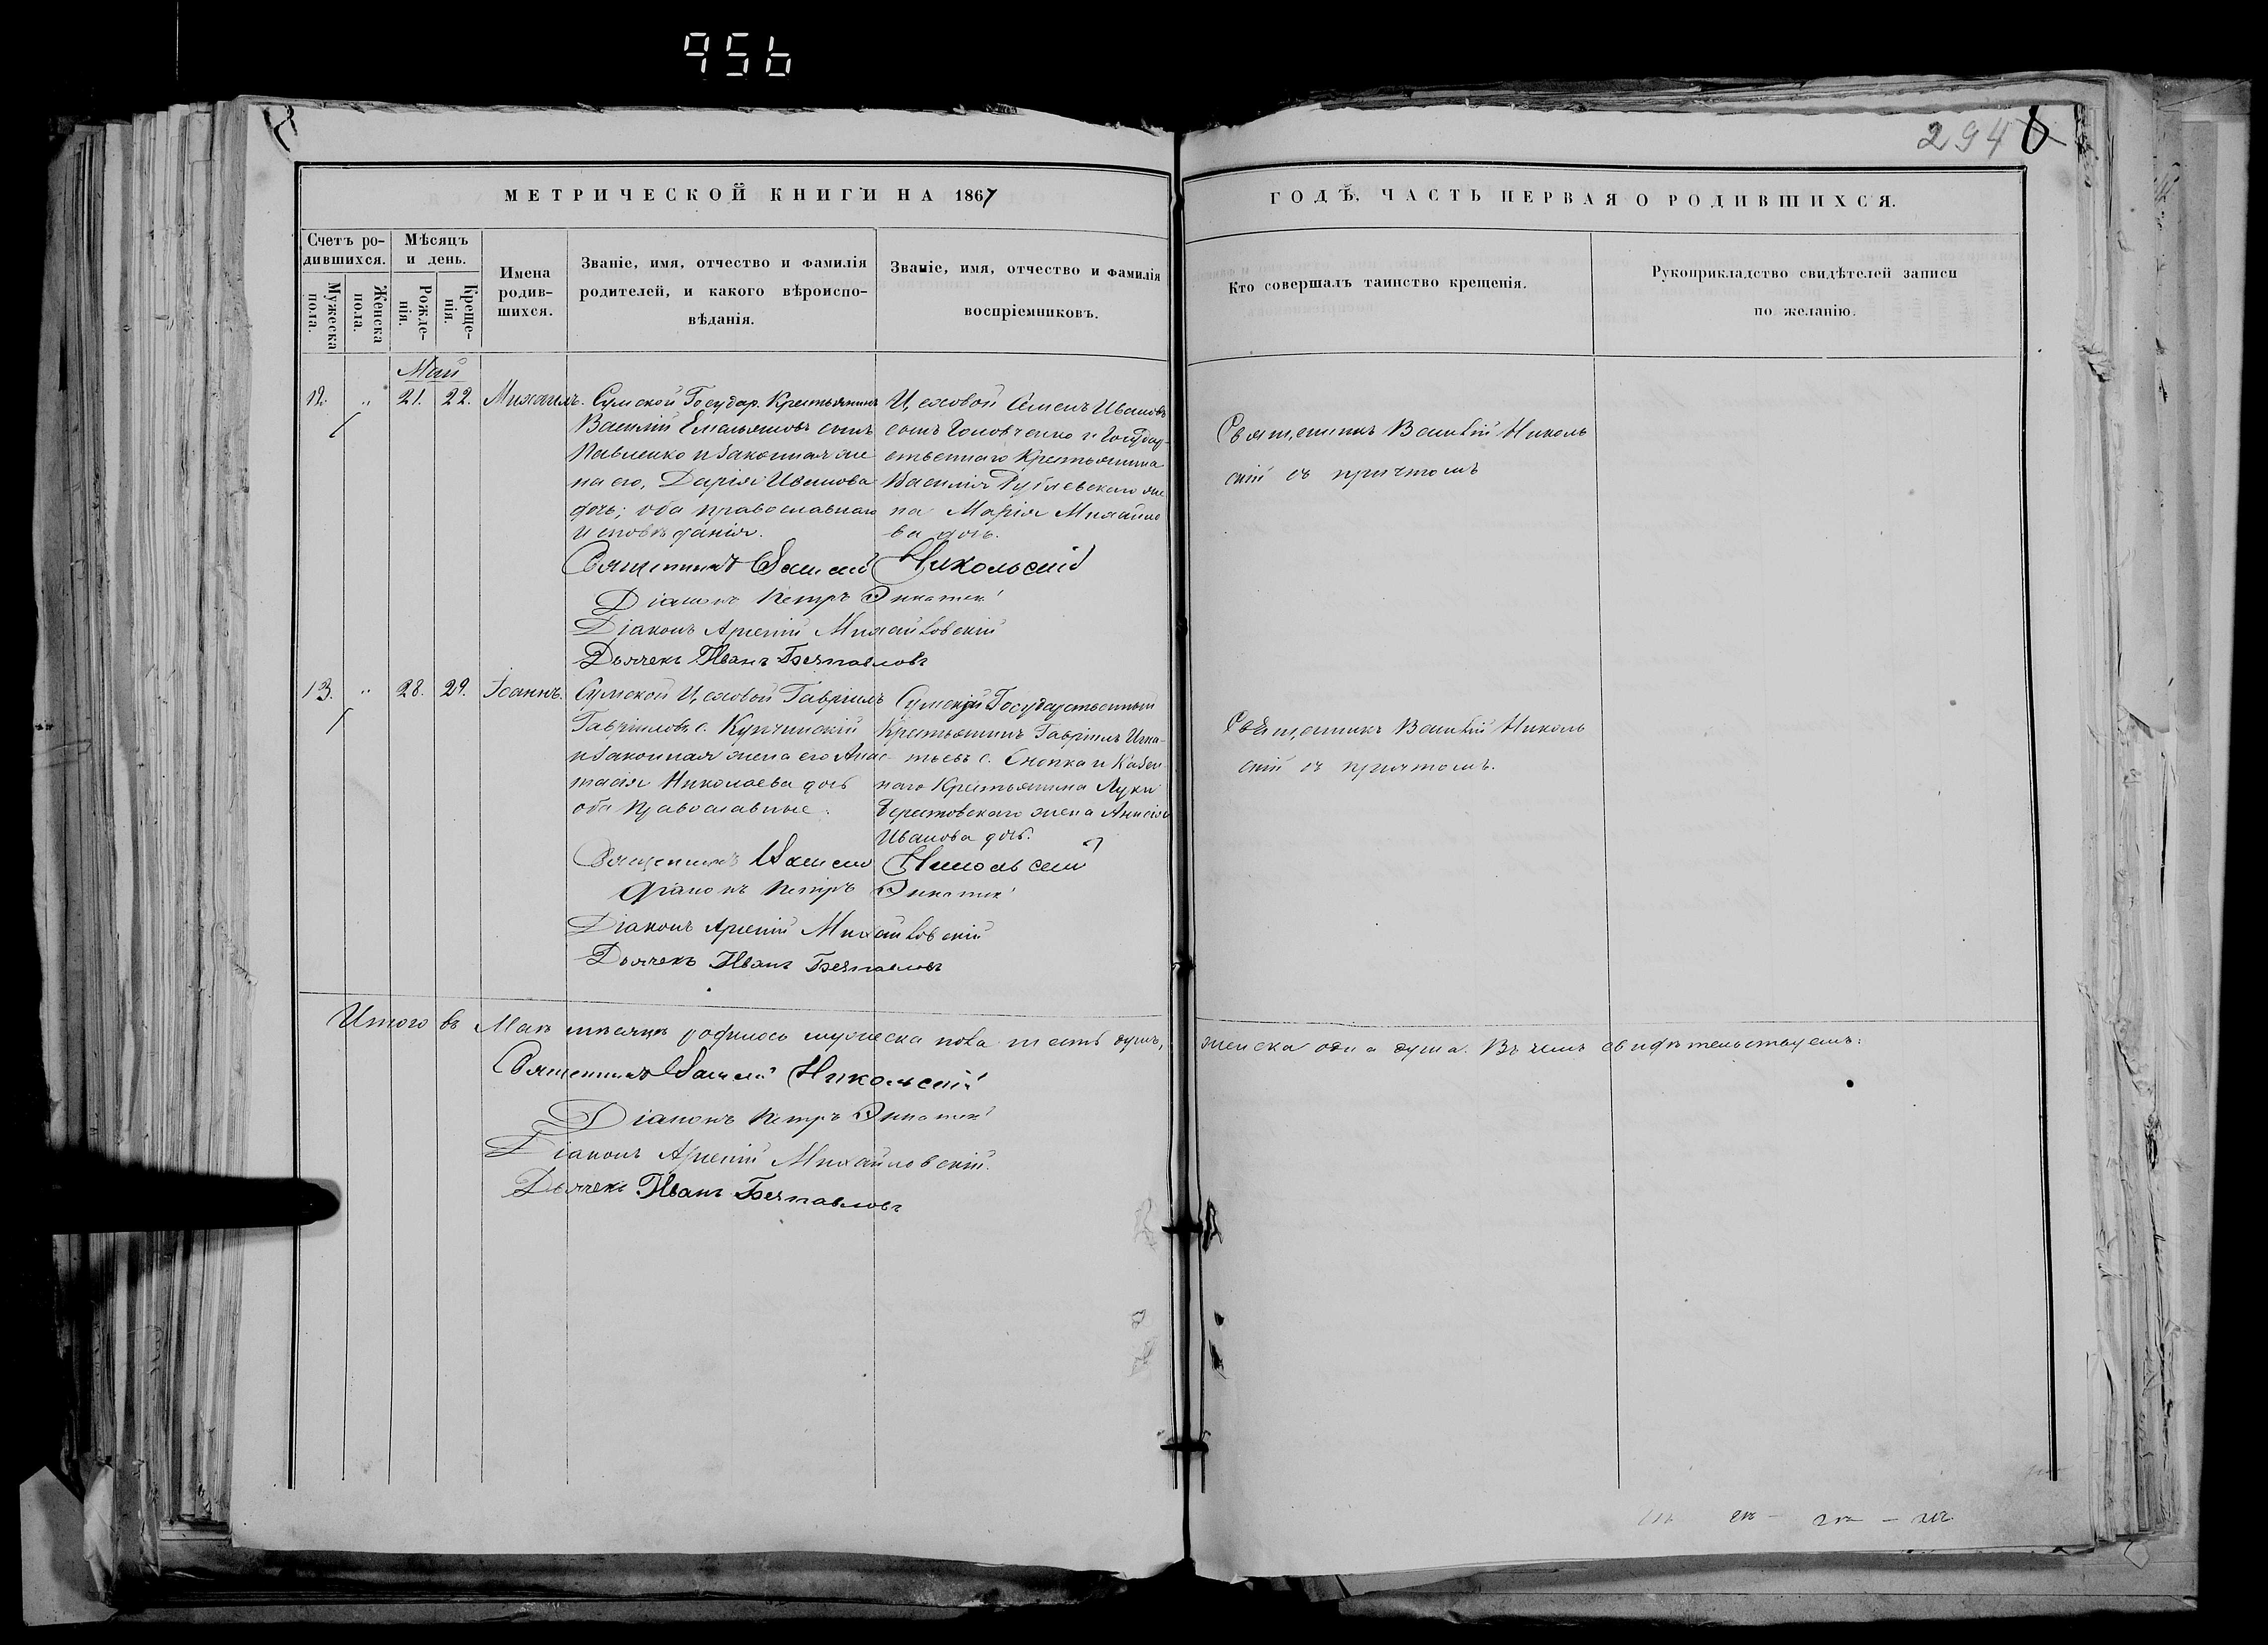 956
294
МЕТРИЧЕСКОЙ КНИГИ НА 1867
ГОДЪ, ЧАСТЬ ПЕРВАЯ О РОДИВШИХСЯ.
Счетъ ро-
дившихся.
Мужеска
пола.
Женска
пола.
Мѣсяцъ
и день.
Рожде-
нія.
Креще-
нія.
Имена
родив-
шихся.
Званіе, имя, отчество и фамилія
родителей, и какого вѣроиспо-
вѣданія.
Званіе, имя, отчество и фамилія
воспріемниковъ.
Кто совершалъ таинство крещенія.
Рукоприкладство свидѣтелей записи
по желанію.
Май
12. " 21. 22. Михаилъ.
Сумской Государ. Крестьянинъ
Василій Емельяновъ сынъ
Павленко и законная же
на его, Дарія Иванова
дочь; оба православнаго
исповѣданія.
Цеховой Семенъ Ивановъ
сынъ Головченко и Государ-
ственнаго Крестьянина
Василія же
на Марія Михайло
ва дочь.
Священникъ Василій Николь
скій съ причтомъ
Священникъ Василій Никольскій
Діаконъ Петръ
Діаконъ Арсеній Михайловскій
Дьячекъ Иванъ Безпаловъ
13. " 28. 29. Іоаннъ.
Сумской Цеховой Гавріилъ
Гавріиловъ с. Купчинскій
и законная жена его Анас-
тасія Николаева дочь
оба православные.
Сумскій Государственный
Крестьянинъ Гавріилъ Игна-
тьевъ с. Снопка и Казен
наго Крестьянина Луки
Берестовскаго жена Анисія
Иванова дочь.
Священникъ Василій Николь
скій съ причтомъ.
Священникъ Василій Никольскій
Діаконъ Петръ
Діаконъ Арсеній Михайловскій
Дьячекъ Иванъ Безпаловъ
Итого въ Маѣ мѣсяцѣ родилось мужеска пола шесть душъ, женска одна душа. Въ чемъ свидѣтельствуемъ:
Священникъ Василій Никольскій
Діаконъ Петръ
Діаконъ Арсеній Михайловскій.
Дьячекъ Иванъ Безпаловъ